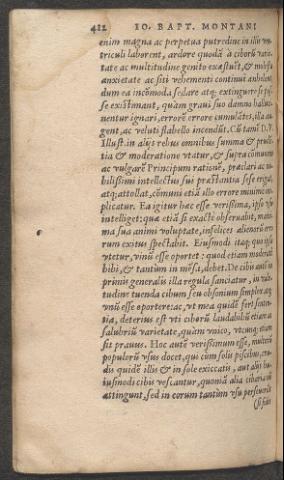 482 IO. BAPT. MONTANI
enim magna ac perpetua putredine in illis ven
triculi laborent, ardore quodã à ciborũ varie
tate ac multitudine genito exæstuẽt, & misera
anxietate ac siti vehementi continui anhelent,
dum ea incõmoda sedare atq; extinguere se pos
se existimant, quàm graui suo damno hallu
nentur ignari, errorẽ errore cumulãtes, illa au
gent, ac veluti flabello incendũt. Cũ tamẽ D.V.
Illust. in alijs rebus omnibus summa & prudẽ
tia & moderatione vtatur, & supra cõmunem
ac vulgarẽ Principum rationẽ, præclari ac no
bilissimi intellectus sui præstantia sese erigat,
atq; attollat, cõmuni etiã illo errore minime im
plicatur. Ea igitur hæc esse verissima, ipso vsu
intelliget: quæ etiã si exactè obseruabit, maxi
ma sua animi voluptate, infelices alienorũ erro
rum exitus spectabit. Eiusmodi itaq; quo ipsa
vtetur, vinũ esse oportet: quod etiam moderatè
bibi, & tantùm in mẽsa, debet. De cibis autẽ in
primis generalis illa regula sanciatur, in vale
tudine tuenda cibum seu obsonium simplex atq;
vnũ esse oportere: ac, vt mea quidẽ fert senten
tia, deterius est vti ciborũ laudabiliũ etiam ac
salubriũ varietate, quàm vnico, vtcunq; etiam
sit prauus. Hoc autẽ verissimum esse, multorũ
populorũ vsus docet, qui cùm solis piscibus, cru
dis quidẽ illis & in sole exiccatis, aut alijs hu
iusmodi cibis vescantur, quoniã alia cibaria nõ
attingunt, sed in eorum tantùm vsu perseuerãt